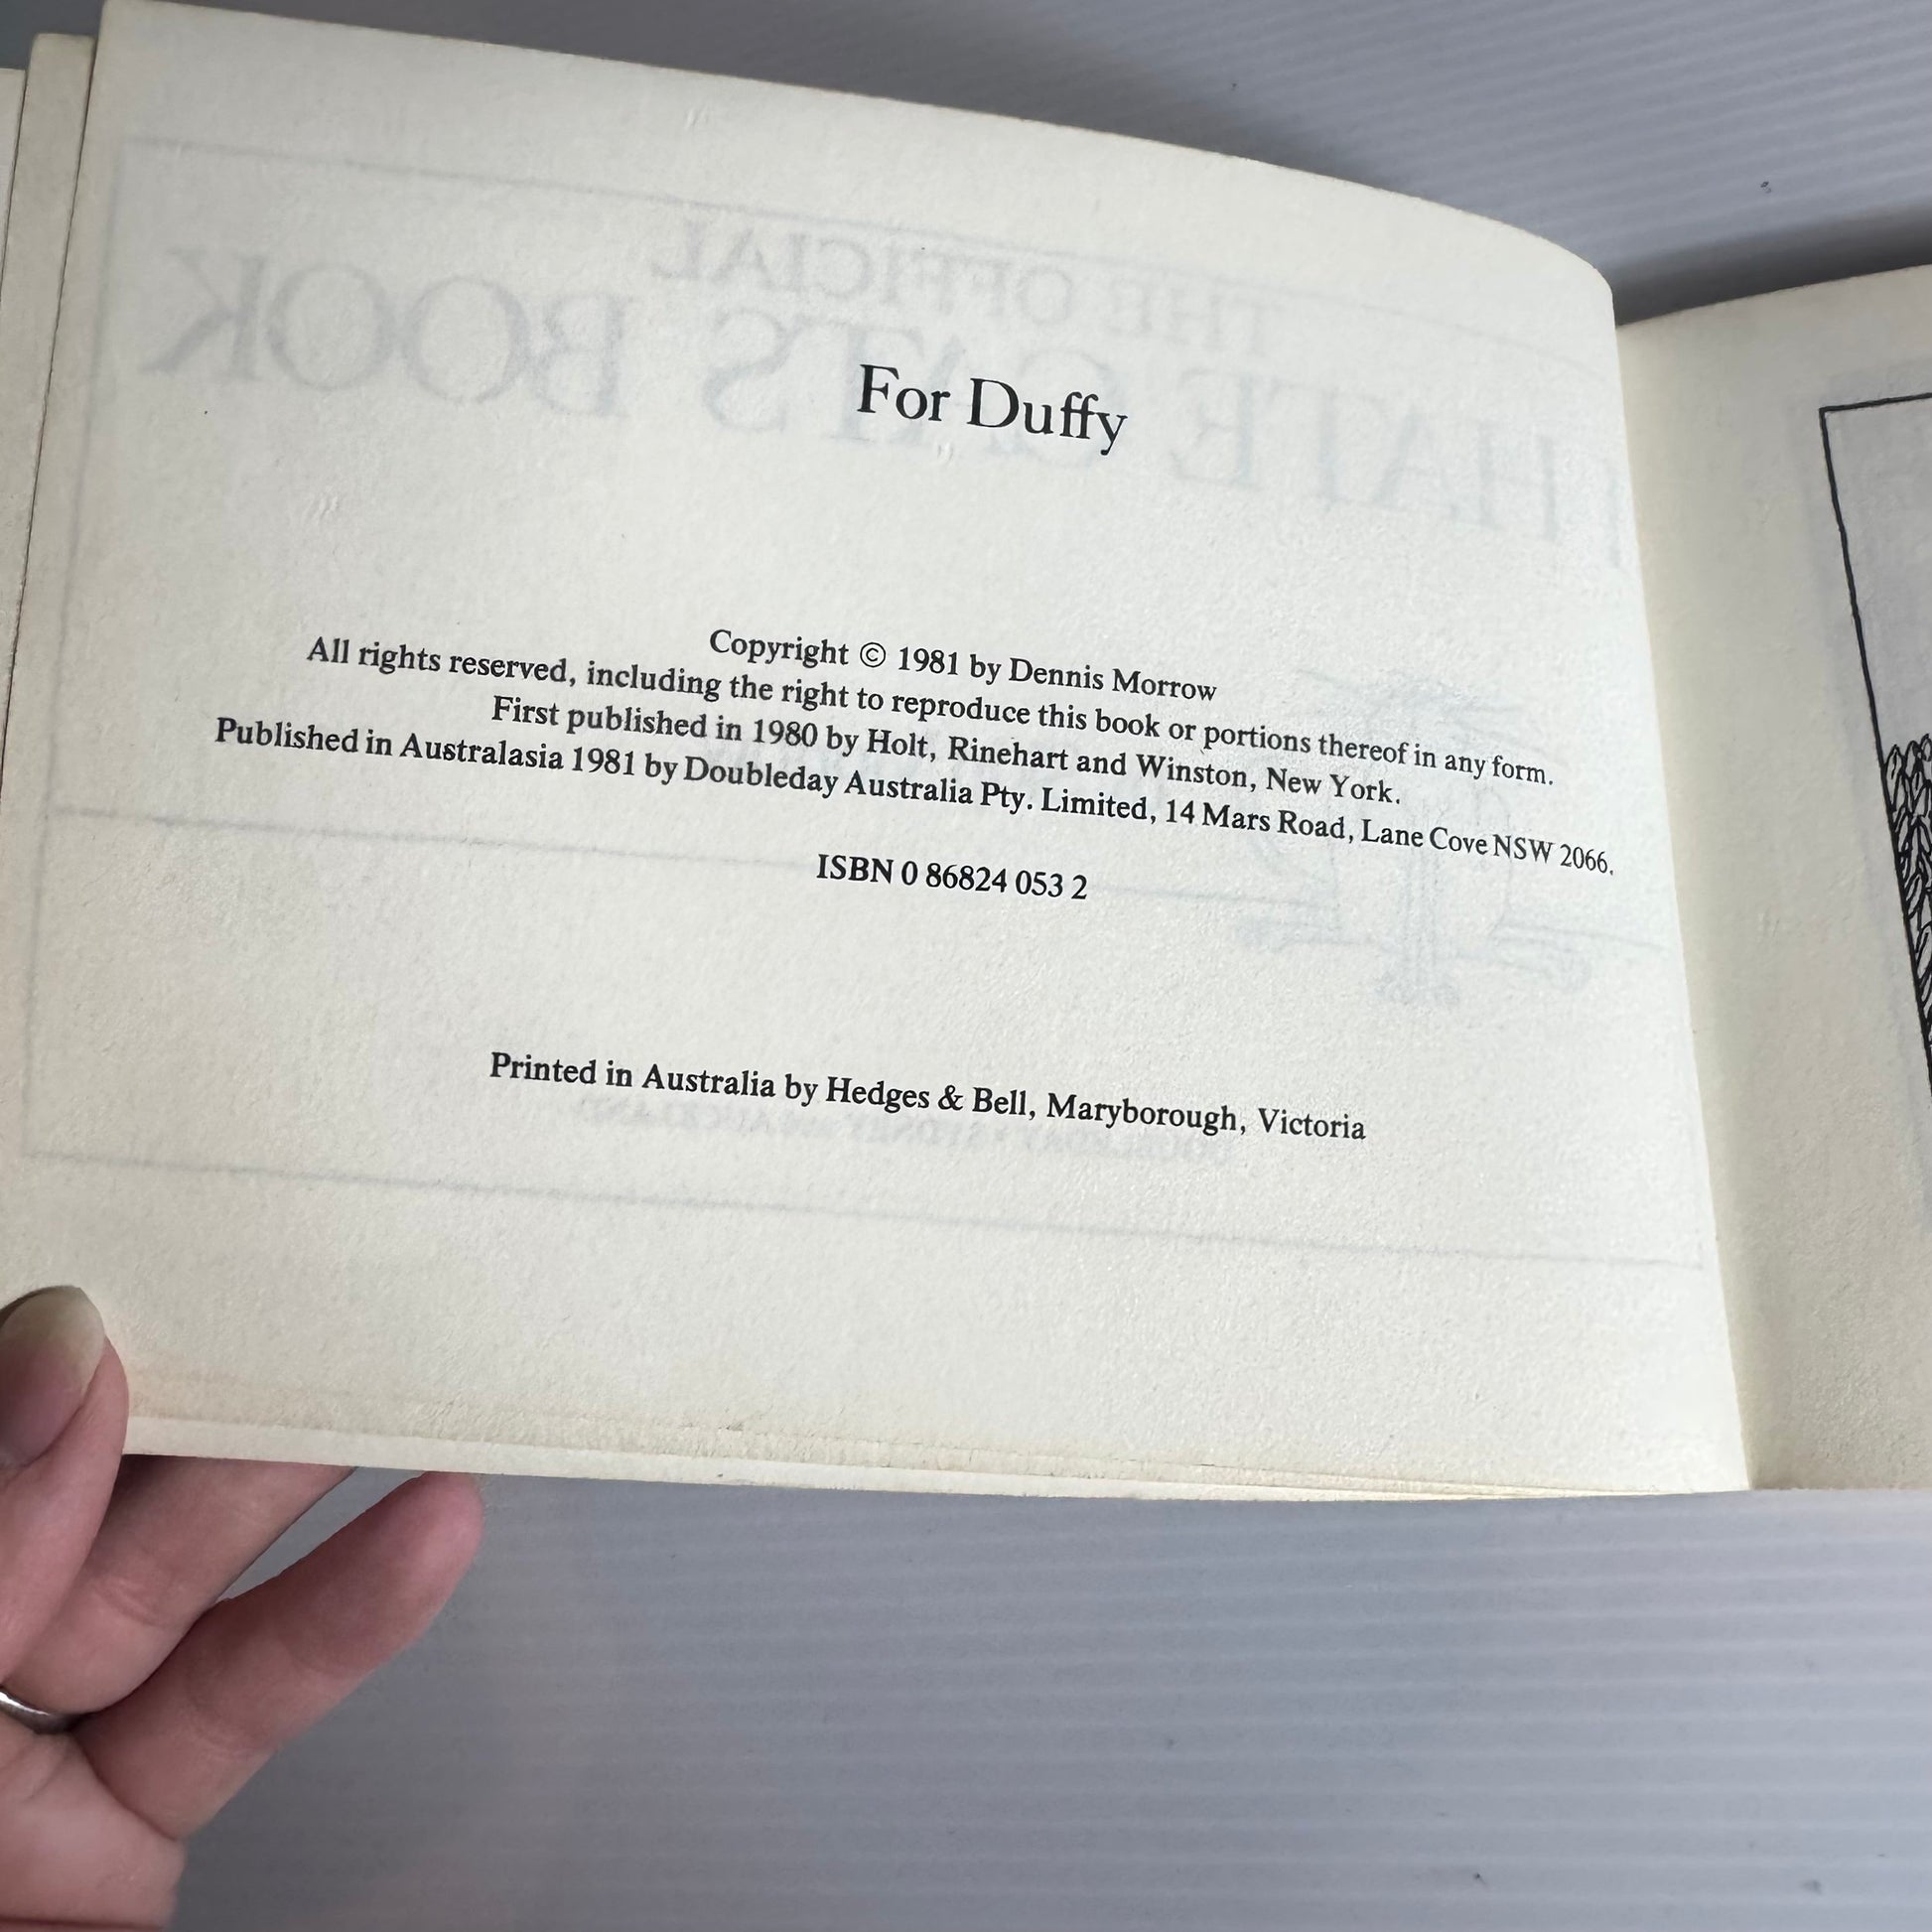 For Duffy
Copyright © 1981 by Dennis Morrow
All rights reserved, including the right to reproduce this book or portions thereof in any form.
First published in 1980 by Holt, Rinehart and Winston, New York.
Published in Australasia 1981 by Doubleday Australia Pty. Limited, 14 Mars Road, Lane Cove NSW 2066.
ISBN 0 86824 053 2
Printed in Australia by Hedges & Bell, Maryborough, Victoria
THE OFFICIAL
HATE CATS BOOK